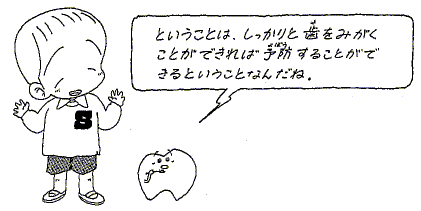 ということは、しっかりと歯をみがく
ことができれば予防することがで
きるということなんだね。
S